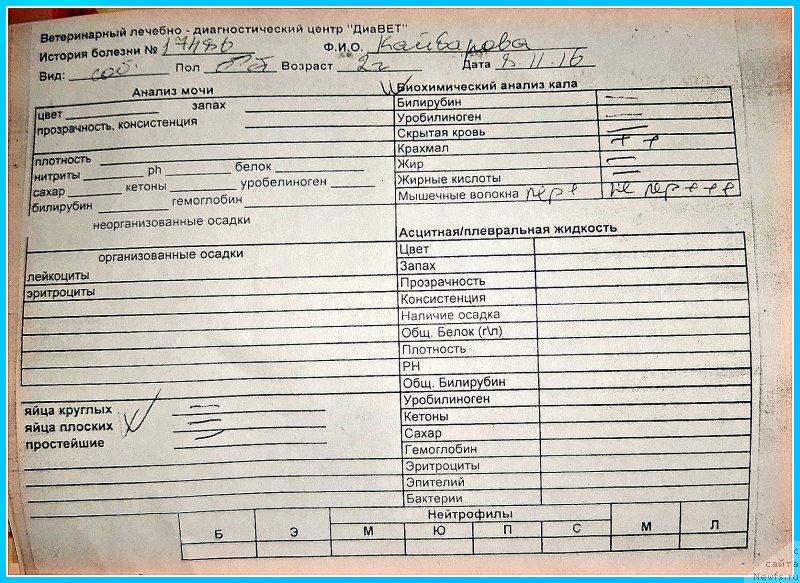 Ветеринарный лечебно - диагностический центр "ДиаВЕТ"
История болезни № Ф.И.О. Кайварова
Вид: соб Пол Возраст 2г Дата 8.11.16
Анализ мочи
цвет запах
прозрачность, консистенция
плотность
нитриты ph белок
сахар кетоны уробелиноген
билирубин гемоглобин
неорганизованные осадки
организованные осадки
лейкоциты
эритроциты
яйца круглых —
яйца плоских —
простейшие —
Биохимический анализ кала
Билирубин —
Уробилиноген —
Скрытая кровь —
Крахмал + +
Жир —
Жирные кислоты —
Мышечные волокна пер + не пер + + +
Асцитная/плевральная жидкость
Цвет
Запах
Прозрачность
Консистенция
Наличие осадка
Общ. Белок (г\л)
Плотность
PH
Общ. Билирубин
Уробилиноген
Кетоны
Сахар
Гемоглобин
Эритроциты
Эпителий
Бактерии
Б Э Нейтрофилы М Л
М Ю П С
с
сайта
Newfs.ru